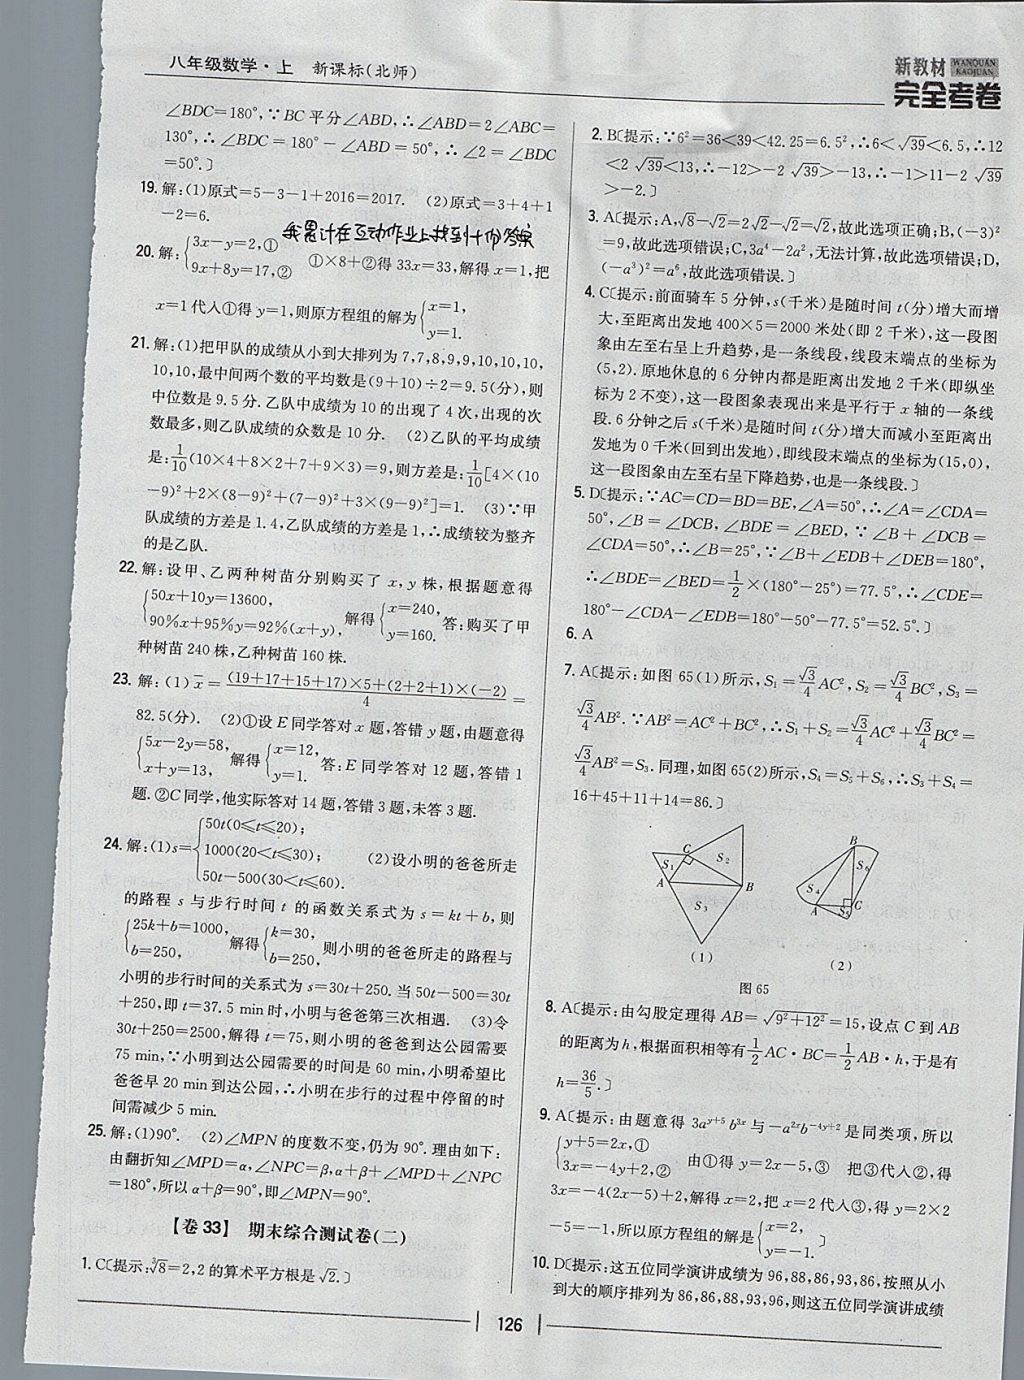 八年级数学·上 新课标(北师)
新教材 WANQUAN KAOJUAN
完全考卷
∠BDC=180°,∵BC平分∠ABD,∴∠ABD=2∠ABC=
130°,∴∠BDC=180°-∠ABD=50°,∴∠2=∠BDC
=50°.〕
19.解:(1)原式=5-3-1+2016=2017. (2)原式=3+4+1
-2=6.
我累计在互动作业上找到十份答案
20.解:{3x-y=2,①
9x+8y=17,② ①×8+②得33x=33,解得x=1,把
x=1代入①得y=1,则原方程组的解为{x=1,
y=1.
21.解:(1)把甲队的成绩从小到大排列为7,7,8,9,9,10,10,10,
10,10,最中间两个数的平均数是(9+10)÷2=9.5(分),则
中位数是9.5分.乙队中成绩为10的出现了4次,出现的次
数最多,则乙队成绩的众数是10分. (2)乙队的平均成绩
是:1/10(10×4+8×2+7+9×3)=9,则方差是:1/10[4×(10
-9)²+2×(8-9)²+(7-9)²+3×(9-9)²]=1. (3)∵甲
队成绩的方差是1.4,乙队成绩的方差是1,∴成绩较为整齐
的是乙队.
22.解:设甲、乙两种树苗分别购买了x,y株,根据题意得
{50x+10y=13600,
90%x+95%y=92%(x+y), 解得{x=240,
y=160. 答:购买了甲
种树苗240株,乙种树苗160株.
23.解:(1)x̄=((19+17+15+17)×5+(2+2+1)×(-2))/4=
82.5(分). (2)①设E同学答对x题,答错y题,由题意得
{5x-2y=58,
x+y=13, 解得{x=12,
y=1. 答:E同学答对12题,答错1
题.②C同学,他实际答对14题,答错3题,未答3题.
24.解:(1)s={50t(0≤t≤20);
1000(20<t≤30);
50t-500(30<t≤60). (2)设小明的爸爸所走
的路程s与步行时间t的函数关系式为s=kt+b,则
{25k+b=1000,
b=250, 解得{k=30,
b=250, 则小明的爸爸所走的路程与
小明的步行时间的关系式为s=30t+250.当50t-500=30t
+250,即t=37.5 min时,小明与爸爸第三次相遇. (3)令
30t+250=2500,解得t=75,则小明的爸爸到达公园需要
75 min,∵小明到达公园需要的时间是60 min,小明希望比
爸爸早20 min到达公园,∴小明在步行的过程中停留的时
间需减少5 min.
25.解:(1)90°. (2)∠MPN的度数不变,仍为90°.理由如下:
由翻折知∠MPD=α,∠NPC=β,α+β+∠MPD+∠NPC
=180°,所以α+β=90°,即∠MPN=90°.
【卷33】 期末综合测试卷(二)
1.C〔提示:∛8=2,2的算术平方根是√2.〕
2.B〔提示:∵6²=36<39<42.25=6.5²,∴6<√39<6.5,∴12
<2√39<13,∴-12>-2√39>-13,∴-1>11-2√39
>-2.〕
3.A〔提示:A,√8-√2=2√2-√2=√2,故此选项正确;B,(-3)²
=9,故此选项错误;C,3a⁴-2a²,无法计算,故此选项错误;D,
(-a³)²=a⁶,故此选项错误.〕
4.C〔提示:前面骑车5分钟,s(千米)是随时间t(分)增大而增
大,至距离出发地400×5=2000米处(即2千米),这一段图
象由左至右呈上升趋势,是一条线段,线段末端点的坐标为
(5,2).原地休息的6分钟内都是距离出发地2千米(即纵坐
标为2不变),这一段图象表现出来是平行于x轴的一条线
段.6分钟之后s(千米)是随时间t(分)增大而减小至距离出
发地为0千米(回到出发地),即线段末端点的坐标为(15,0),
这一段图象由左至右呈下降趋势,也是一条线段.〕
5.D〔提示:∵AC=CD=BD=BE,∠A=50°,∴∠A=∠CDA=
50°,∠B=∠DCB,∠BDE=∠BED,∵∠B+∠DCB=
∠CDA=50°,∴∠B=25°,∵∠B+∠EDB+∠DEB=180°,
∴∠BDE=∠BED=1/2×(180°-25°)=77.5°,∴∠CDE=
180°-∠CDA-∠EDB=180°-50°-77.5°=52.5°.〕
6.A
7.A〔提示:如图65(1)所示,S₁=√3/4AC²,S₂=√3/4BC²,S₃=
√3/4AB².∵AB²=AC²+BC²,∴S₁+S₂=√3/4AC²+√3/4BC²=
√3/4AB²=S₃.同理,如图65(2)所示,S₄=S₅+S₆,∴S₃+S₄=
16+45+11+14=86.〕
C S₁ S₂ A B S₃
(1)
B S₆ S₄ A S₅ C
(2)
图65
8.A〔提示:由勾股定理得AB=√9²+12²=15,设点C到AB
的距离为h,根据面积相等有1/2AC·BC=1/2AB·h,于是有
h=36/5.〕
9.A〔提示:由题意得3a^(y+5)b^(3x)与-a^(2x)b^(-4y+2)是同类项,所以
{y+5=2x,①
3x=-4y+2,② 由①得y=2x-5,③ 把③代入②,得
3x=-4(2x-5)+2,解得x=2,把x=2代入③,得y=2×2
-5=-1,所以原方程组的解是{x=2,
y=-1.〕
10.D〔提示:这五位同学演讲成绩为96,88,86,93,86,按照从小
到大的顺序排列为86,86,88,93,96,则这五位同学演讲成绩
126